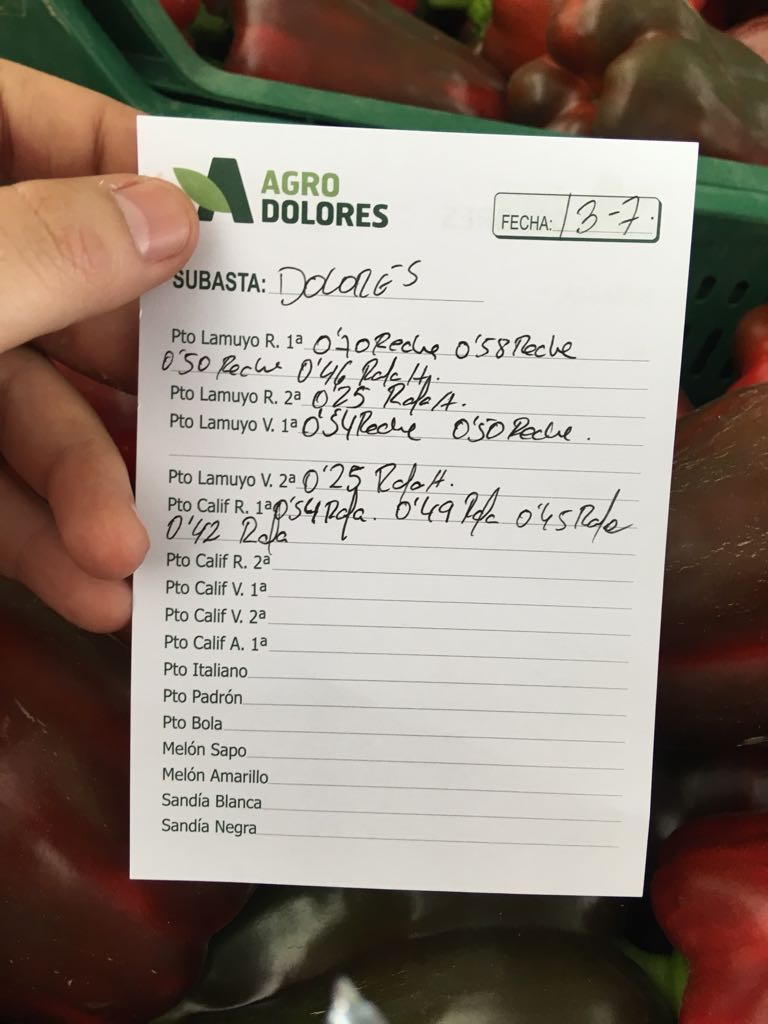 AGRO
DOLORES
FECHA: 3-7.
SUBASTA: DOLORES
Pto Lamuyo R. 1ª 0'70 Reche 0'58 Reche
0'50 Reche 0'46 Rafa H.
Pto Lamuyo R. 2ª 0'25 Rafa H.
Pto Lamuyo V. 1ª 0'54 Reche 0'50 Reche.
Pto Lamuyo V. 2ª 0'25 Rafa H.
Pto Calif R. 1ª 0'54 Rafa. 0'49 Rafa 0'45 Rafa
0'42 Rafa
Pto Calif R. 2ª
Pto Calif V. 1ª
Pto Calif V. 2ª
Pto Calif A. 1ª
Pto Italiano
Pto Padrón
Pto Bola
Melón Sapo
Melón Amarillo
Sandía Blanca
Sandía Negra